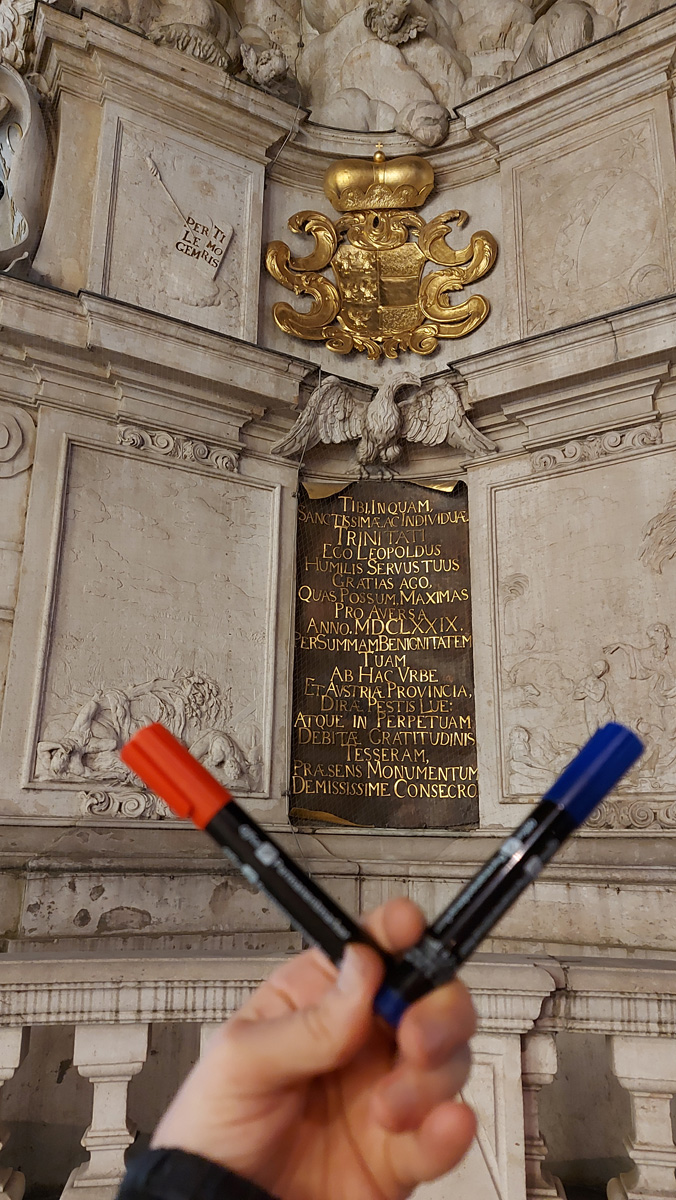 PER TI
LE MO
GEMRIS
TIBI, INQUAM,
SANCTISSIMÆ, AC INDIVIDUÆ
TRINITATI
EGO LEOPOLDUS
HUMILIS SERVUS TUUS
GRATIAS AGO,
QUAS POSSUM, MAXIMAS
PRO AVERSA
ANNO. MDCLXXIX.
PER SUMMAM BENIGNITATEM
TUAM
AB HAC VRBE
ET AVSTRIÆ PROVINCIA,
DIRÆ PESTIS LUE:
ATQUE IN PERPETUAM
DEBITÆ GRATITUDINIS
TESSERAM,
PRÆSENS MONUMENTUM
DEMISSISSIME CONSECRO